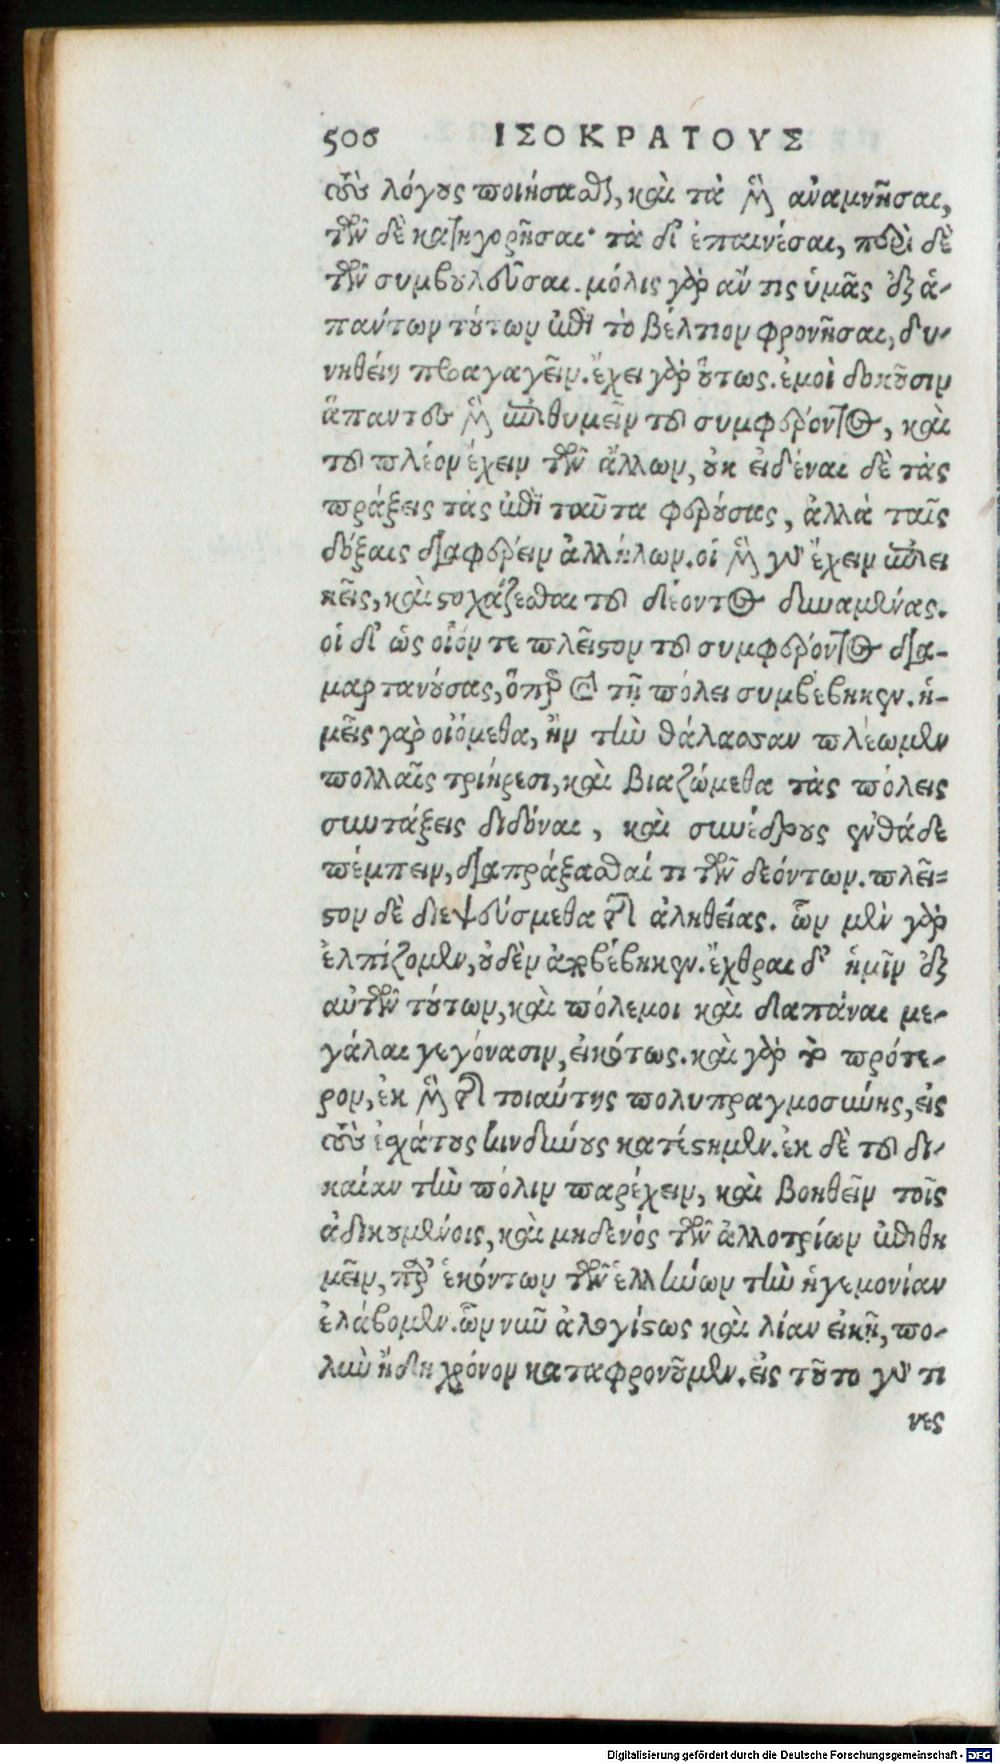 506 ΙΣΟΚΡΑΤΟΥΣ
τοὺς λόγους ποιήσασθαι, καὶ τὰ μὲν ἀναμνῆσαι,
τῶν δὲ κατηγορῆσαι· τὰ δ' ἐπαινέσαι, περὶ δὲ
τῶν συμβουλεῦσαι. μόλις γὰρ ἄν τις ὑμᾶς ἐξ ἁ-
πάντων τούτων ἐπὶ τὸ βέλτιον φρονῆσαι, δυ-
νηθείη προαγαγεῖν. ἔχει γὰρ οὕτως. ἐμοὶ δοκοῦσιν
ἅπαντες μὲν ἐπιθυμεῖν τοῦ συμφέροντος, καὶ
τοῦ πλέον ἔχειν τῶν ἄλλων, οὐκ εἰδέναι δὲ τὰς
πράξεις τὰς ἐπὶ ταῦτα φερούσας, ἀλλὰ ταῖς
δόξαις διαφέρειν ἀλλήλων. οἱ μὲν γὰρ ἔχειν ἐπιει
κεῖς, καὶ στοχάζεσθαι τοῦ δέοντος δυναμένας.
οἱ δ' ὡς οἷόν τε πλεῖστον τοῦ συμφέροντος δια-
μαρτανούσας, ὅπερ καὶ τῇ πόλει συμβέβηκεν. ἡ-
μεῖς γὰρ οἰόμεθα, ἢν τὴν θάλασσαν πλέωμεν
πολλαῖς τριήρεσι, καὶ βιαζώμεθα τὰς πόλεις
συντάξεις διδόναι, καὶ συνέδρους ἐνθάδε
πέμπειν, διαπράξασθαί τι τῶν δεόντων. πλεῖ-
στον δὲ διεψεύσμεθα τῆς ἀληθείας. ὧν μὲν γὰρ
ἐλπίζομεν, οὐδὲν ἀποβέβηκεν. ἔχθραι δ' ἡμῖν ἐξ
αὐτῶν τούτων, καὶ πόλεμοι καὶ διαπάναι με-
γάλαι γεγόνασιν, εἰκότως. καὶ γὰρ τὸ πρότε-
ρον, ἐκ μὲν τῆς τοιαύτης πολυπραγμοσύνης, εἰς
τοὺς ἐσχάτους κινδύνους κατέστημεν. ἐκ δὲ τοῦ δι-
καίαν τὴν πόλιν παρέχειν, καὶ βοηθεῖν τοῖς
ἀδικουμένοις, καὶ μηδενὸς τῶν ἀλλοτρίων ἐπιθη
μεῖν, παρ' ἑκόντων τῶν ἑλλήνων τὴν ἡγεμονίαν
ἐλάβομεν. ὧν νῦν ἀλογίστως καὶ λίαν εἰκῇ, πο-
λὺν ἤδη χρόνον καταφρονοῦμεν. εἰς τοῦτο γάρ τι
νες
Digitalisierung gefördert durch die Deutsche Forschungsgemeinschaft - DFG